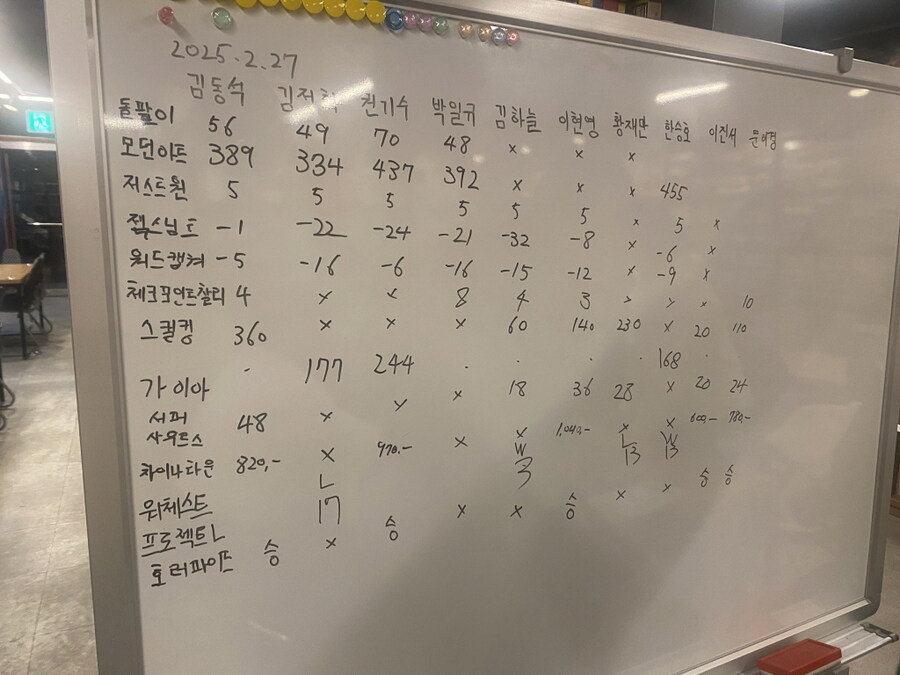 2025.2.27
김동석 천기수 박일규 김하늘 이현영 황재만 한승호 이진서
돌팔이 56 49 70 48 x x x
모던아트 389 334 437 392 x x x 455
저스트원 5 5 5 5 5 5 x 5 x
젝스님트 -1 -22 -24 -21 -32 -8 x -6 x
워드캡쳐 -5 -16 -6 -16 -15 -12 x -9 x
체크포인트찰리 4 x x 8 4 3 x x x 10
스컬킹 360 x x x 60 140 230 x 20 110
· 177 244 · · · · 168 ·
가이아
18 36 28 x 20 24
서퍼
사우르스 48 x x x
차이나타운 820,- x 970,- x x 1,040,- x x 600,- 780,-
L W L W
워체스트 17 3 13 13
프로젝트L
x 승 x x 승 x x 승 승
토러파이프 승